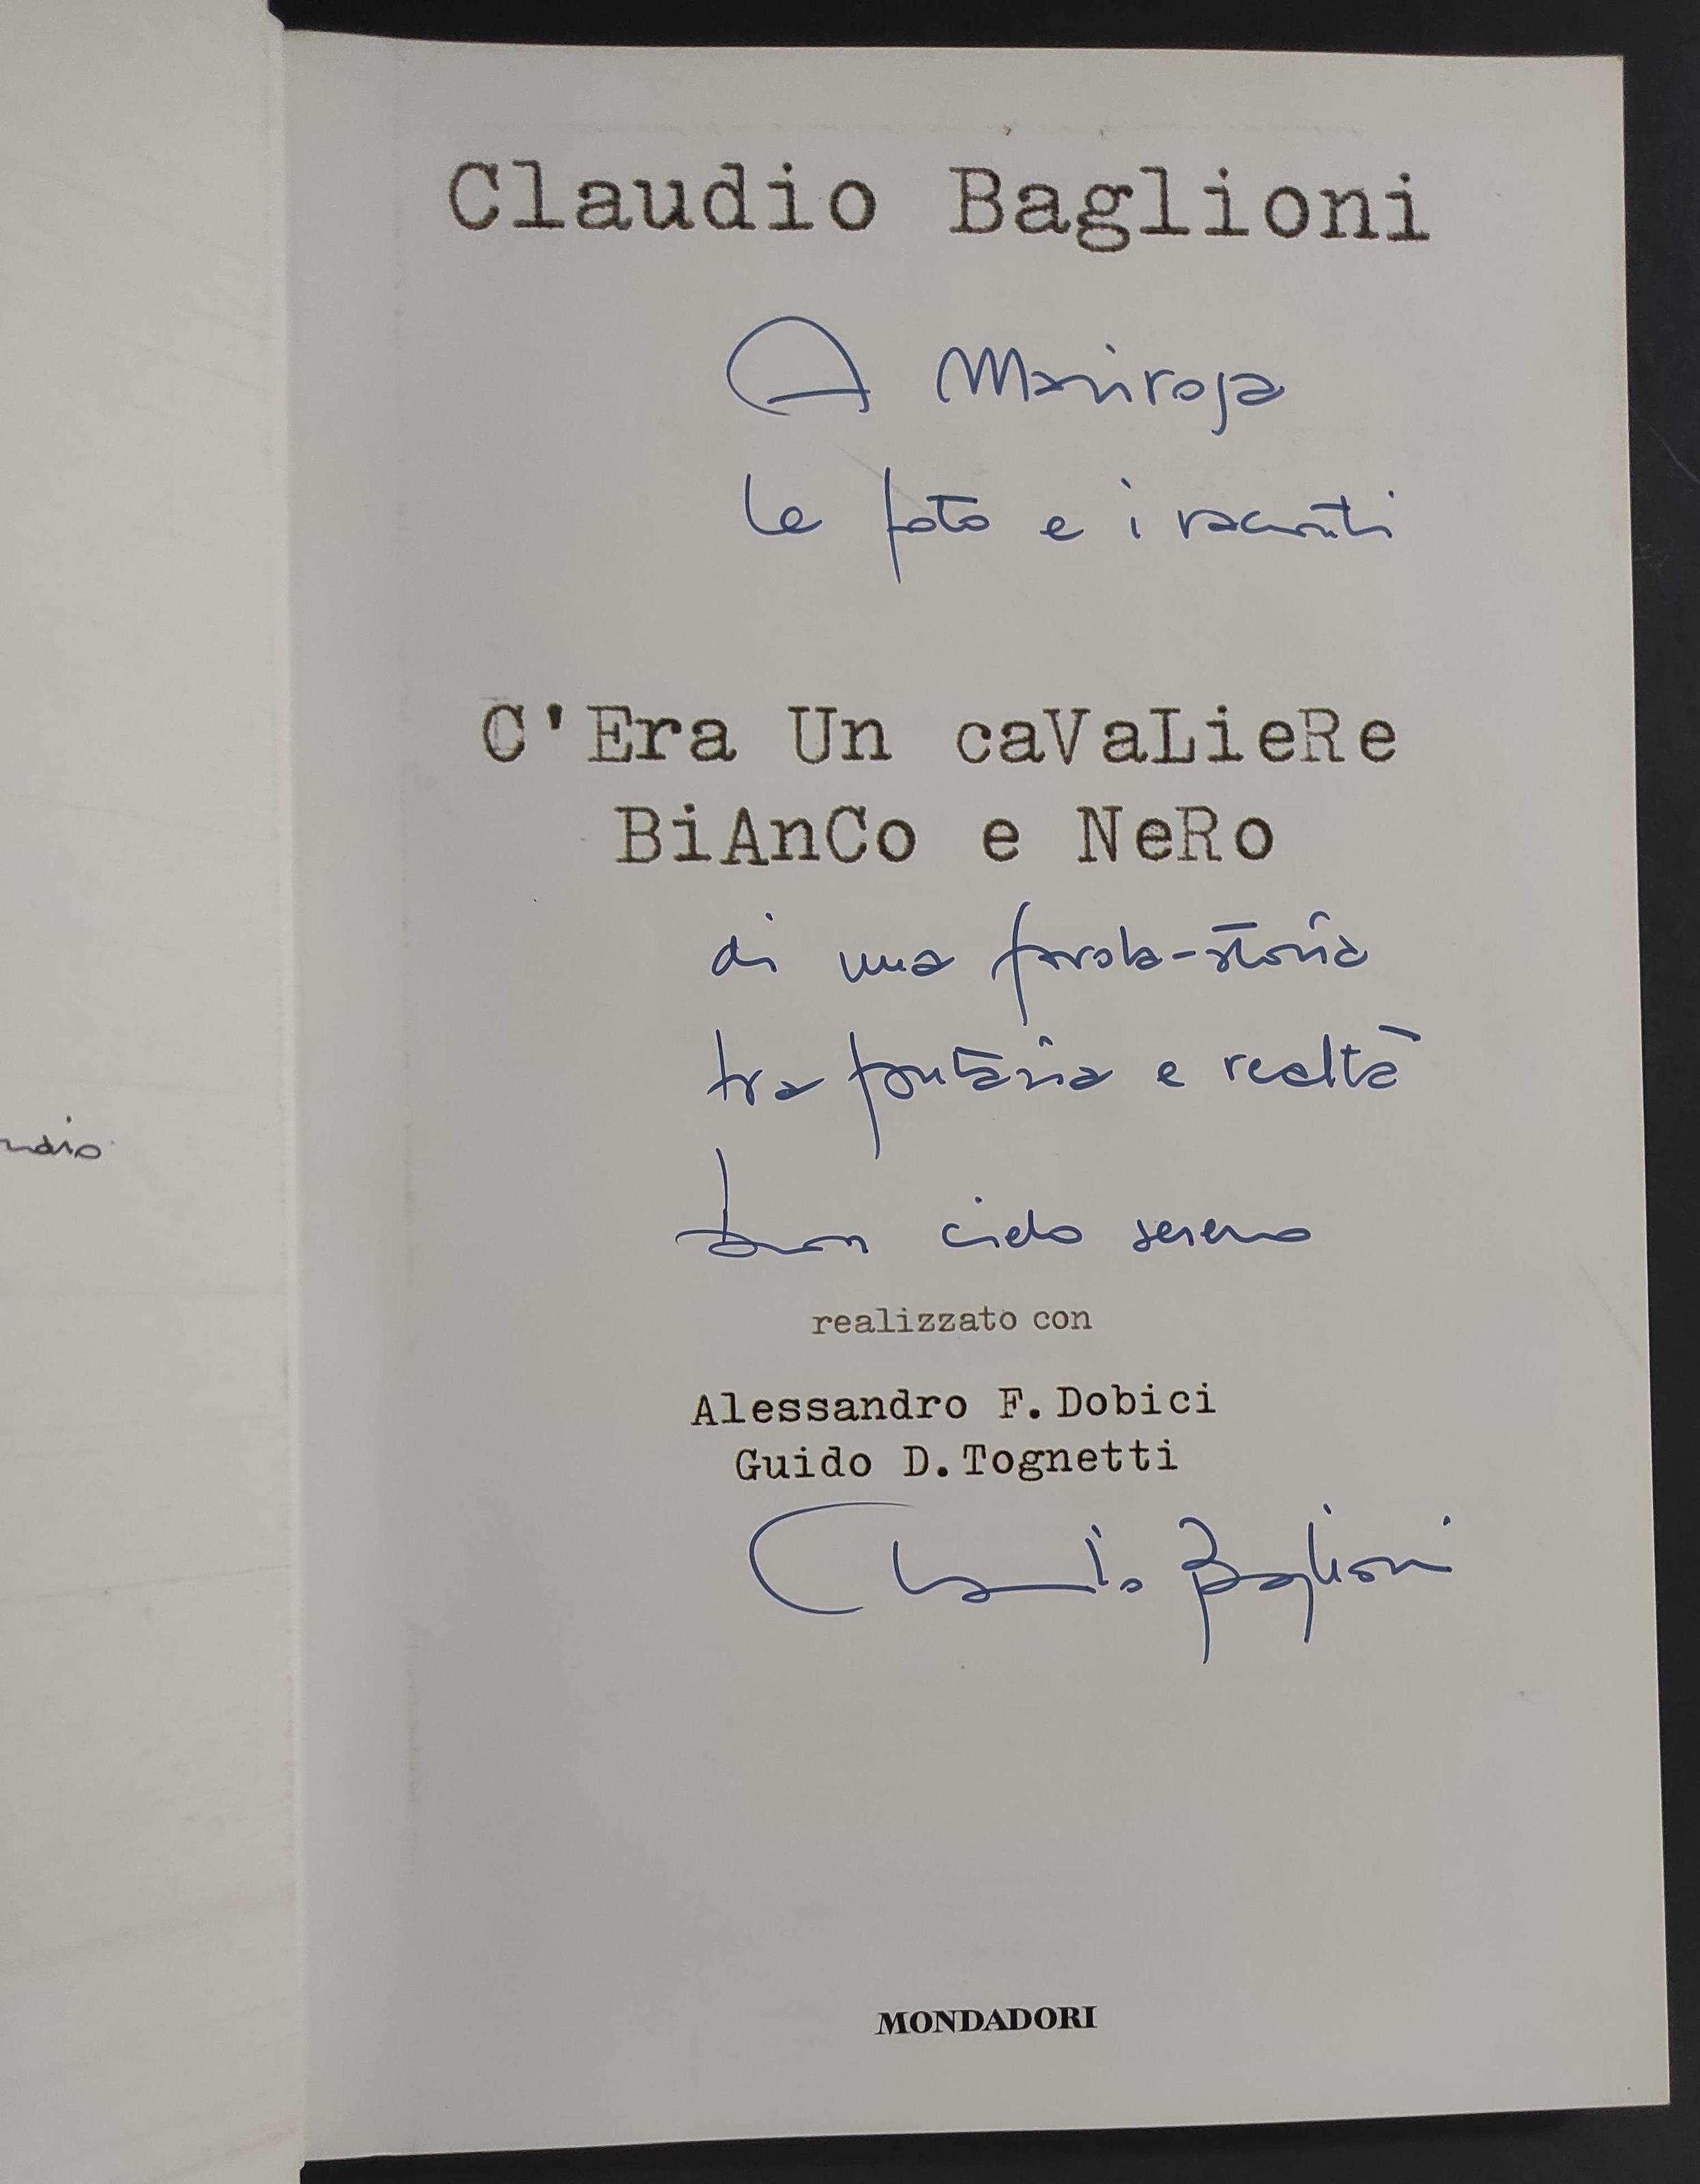 Claudio Baglioni
A Marirosa
le foto e i racconti
C'Era Un caVaLieRe
BiAnCo e NeRo
di una favola-storia
tra fantasia e realtà
buon cielo sereno
realizzato con
Alessandro F. Dobici
Guido D. Tognetti
Claudio Baglioni
MONDADORI